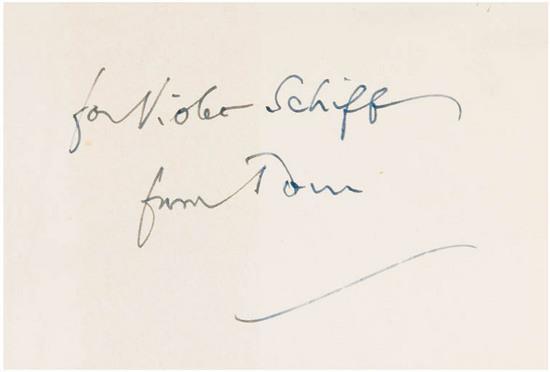 for Violet Schiff
from Tom